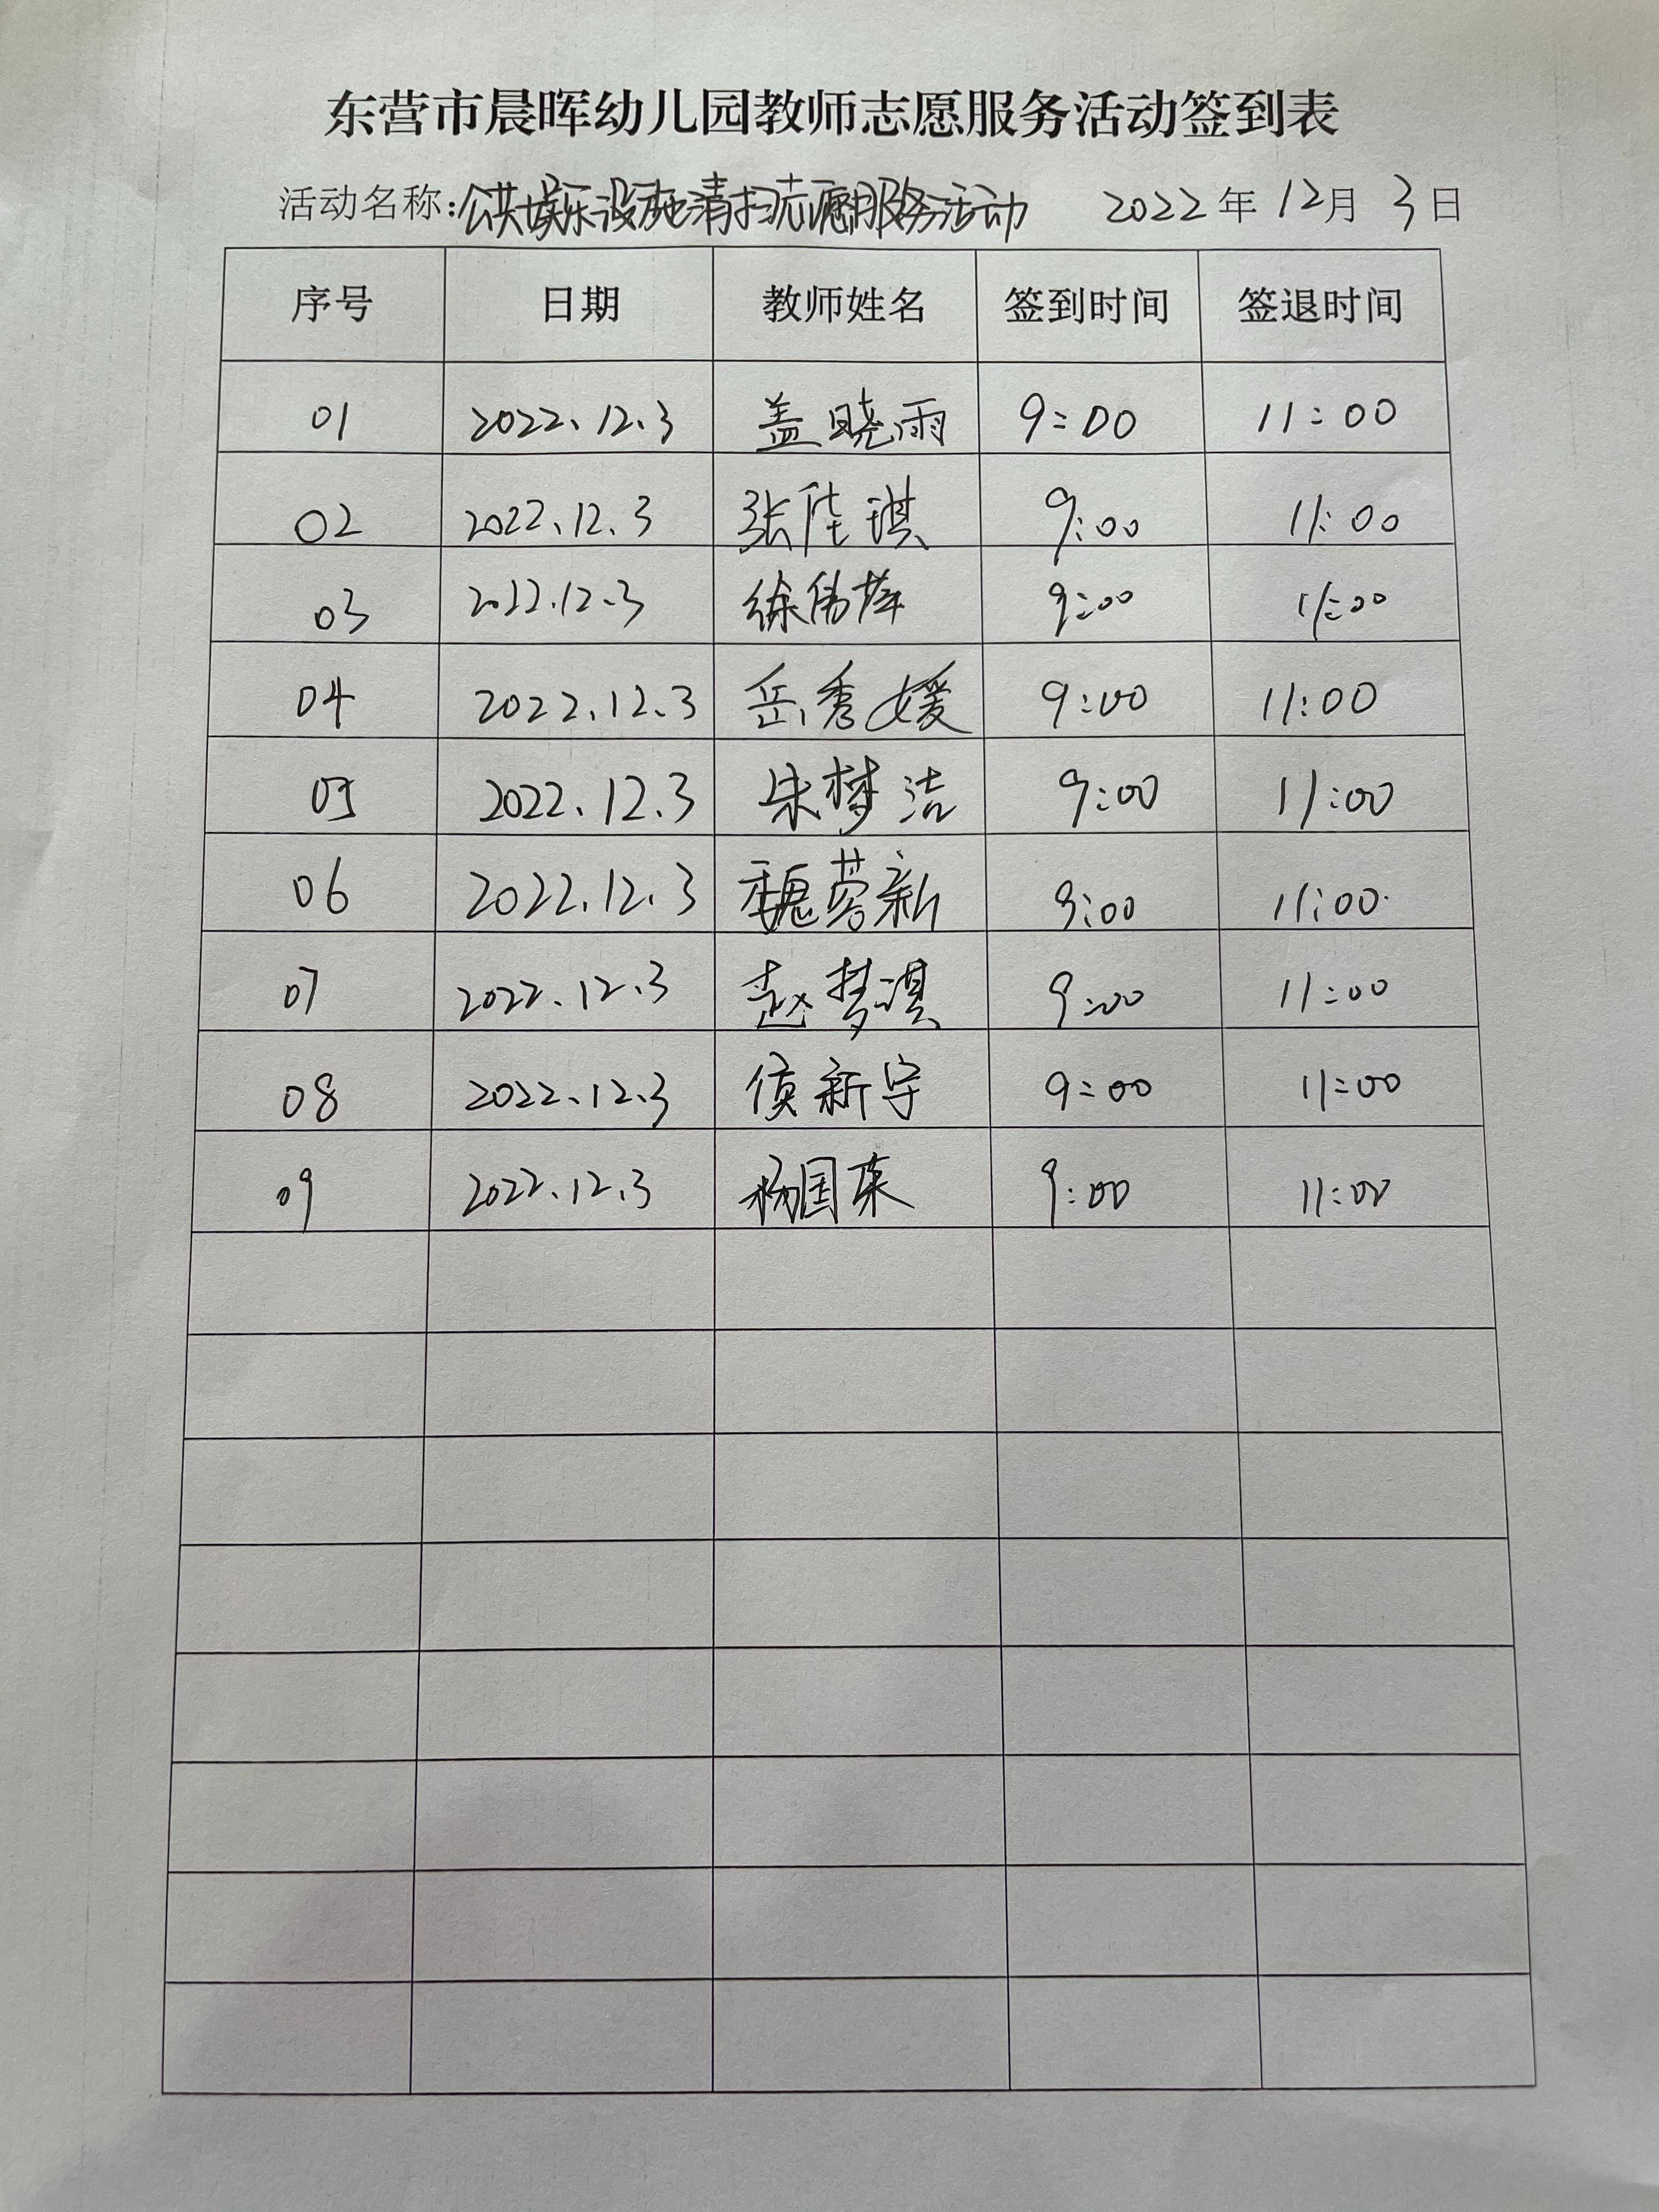 东营市晨晖幼儿园教师志愿服务活动签到表
活动名称:公共娱乐设施清扫志愿服务活动 2022年12月3日
序号 日期 教师姓名 签到时间 签退时间
01 2022.12.3 盖晓雨 9:00 11:00
02 2022.12.3 张佳琪 9:00 11:00
03 2022.12.3 徐伟萍 9:00 11:00
04 2022.12.3 岳秀媛 9:00 11:00
05 2022.12.3 朱梦洁 9:00 11:00
06 2022.12.3 魏蓉新 9:00 11:00
07 2022.12.3 赵梦淇 9:00 11:00
08 2022.12.3 新宇 9:00 11:00
09 2022.12.3 杨国荣 9:00 11:00